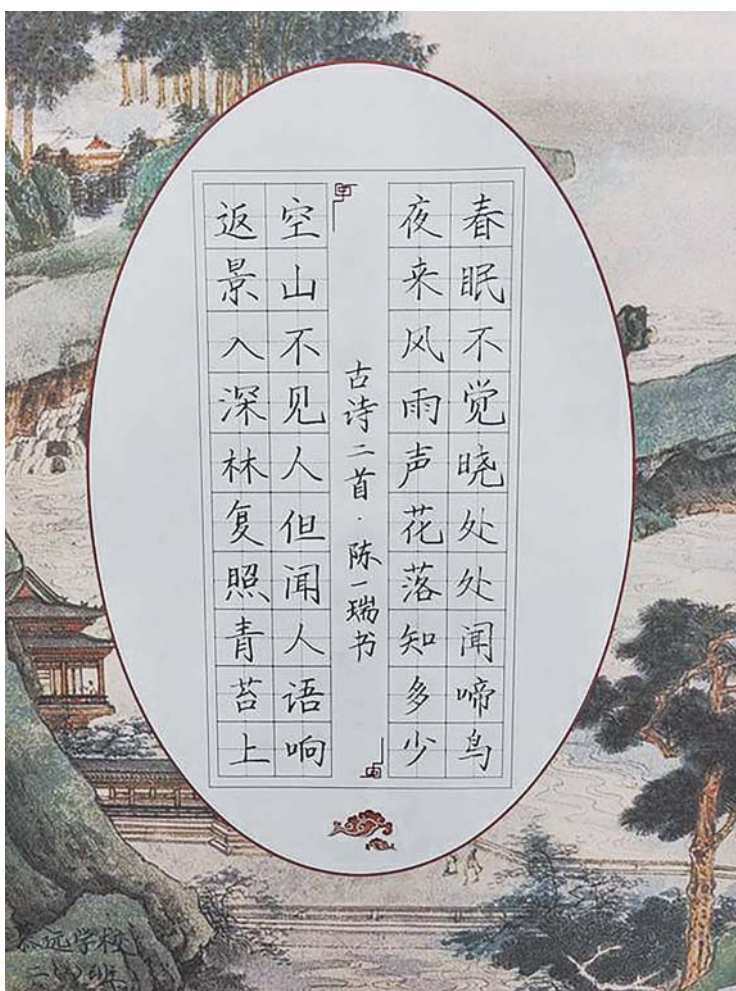 春眠不觉晓处处闻啼鸟
夜来风雨声花落知多少
古诗二首·陈一瑞书
空山不见人但闻人语响
返景入深林复照青苔上
远学校
二班